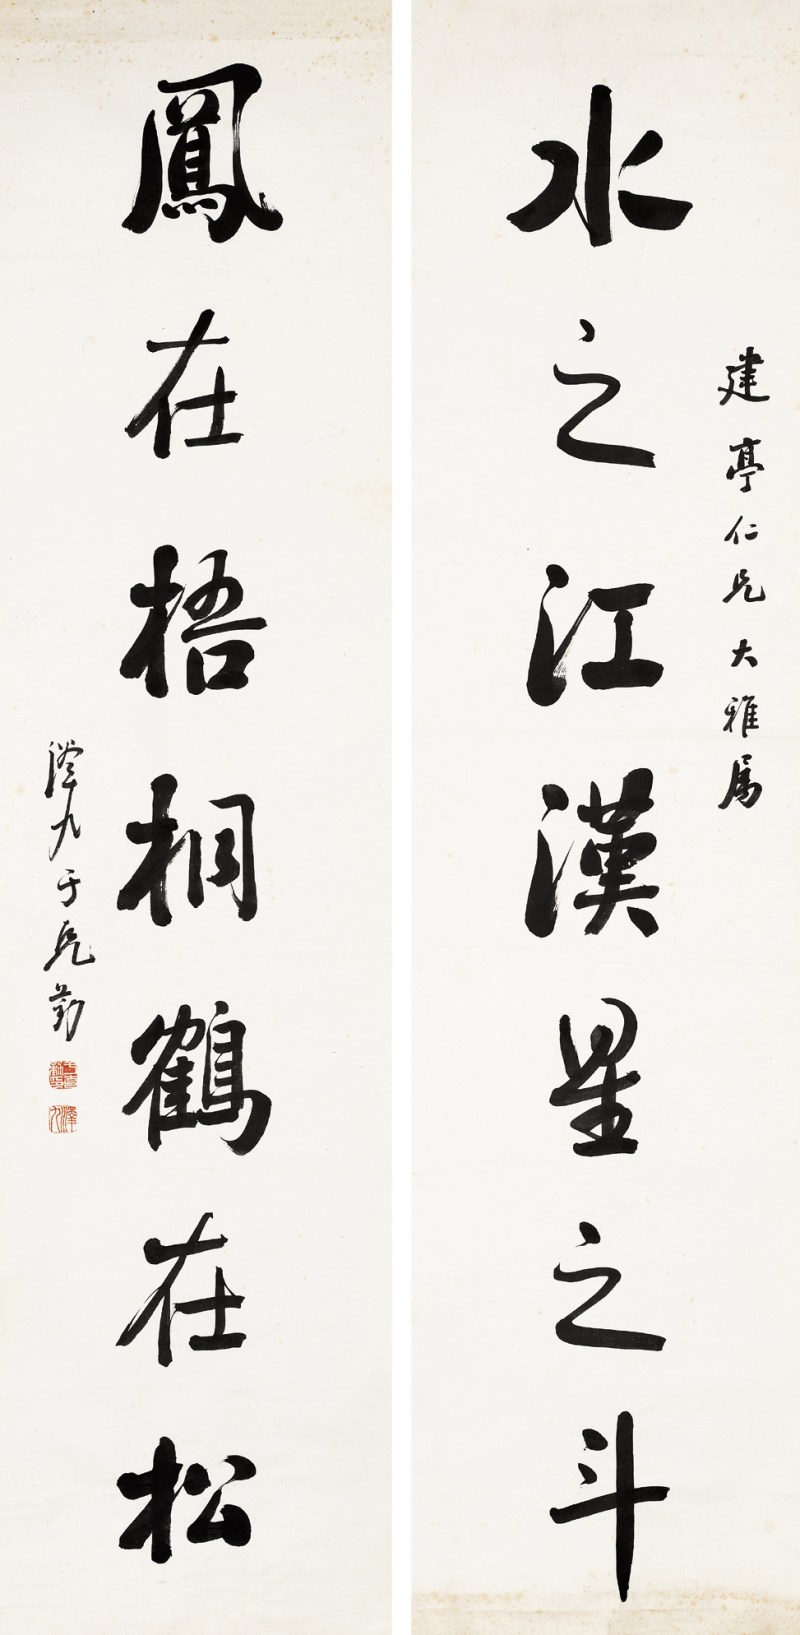 建亭仁兄大雅属
水之江漢星之斗
鳳在梧桐鶴在松
澤九于元勤
澤九